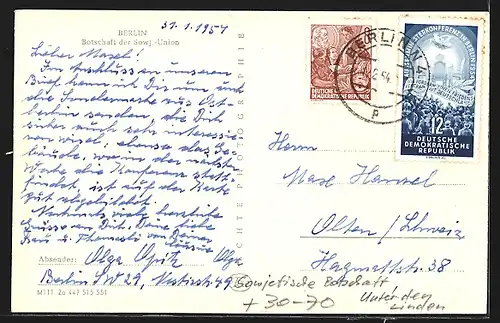 BERLIN
Botschaft der Sowj.-Union
31.1.1954
Lieber Maxel!
Im Anschluss an unseren
Brief, kann ich Dir nun und
die Sondermarke aus Ost-
berlin senden, die Dich
sicher auch sehr interessie-
ren wird; ebenso das Ge-
bäude, worin der nächste
Woche die Konferenz statt-
findet, ist auf der Karte
gut abgebildet.
Nochmals viele herzliche
Grüsse an Dich, Deine liebe
Frau u. von Deiner
Olga
Absender: Olga Opitz
Berlin SW 29,
M111 Za 447 515 551
ECHTE PHOTOGRAPHIE
DEUTSCHE
DEMOKRATISCHE REPUBLIK
BERLIN
54
P
VIERMÄCHTEKONFERENZ IN BERLIN 1954
12
DEUTSCHE
DEMOKRATISCHE
REPUBLIK
Herrn
Max Hansel
Olten / Schweiz
Hagmattstr. 38
Sowjetische Botschaft
Unter den
Linden
+30-70